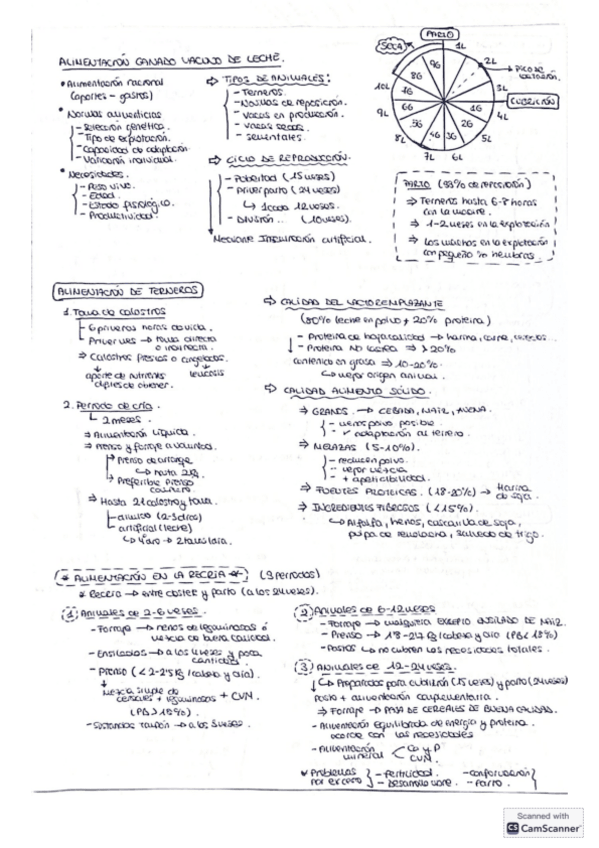 ALIMENTACIÓN GANADO VACUNO DE LECHE.
• Alimentación racional
(aportes - gastos)
• Normas alimenticias
- Selección genética.
- Tipo de explotación.
- Capacidad de adaptación
- Variación individual.
• Necesidades.
- Peso vivo.
- Edad.
- Estado fisiológico.
- Productividad.
⇨ TIPOS DE ANIMALES:
- Terneros.
- Novillas de reposición.
- Vacas en producción.
- Vacas secas.
- Sementales.
⇨ CICLO DE REPRODUCCIÓN.
- Pubertad (15 meses)
- Primer parto (24 meses)
↳ 1 cada 12 meses.
(10 meses).
Mediante Inseminación artificial.
PARTO
SECA
1L
2L
PICO DE
LACTACIÓN.
3L
CUBRICIÓN
4L
5L
6L
7L
8L
9L
10L
9G
8G
7G
6G
5G
4G
3G
2G
1G
PARTO
⇒ Terneros hasta 6-8 horas
con la madre.
⇒ 1-2 meses en la explotación
⇒ Los machos en la explotación
con pequeño % hembras.
ALIMENTACIÓN DE TERNEROS
1. Toma de calostros
6 primeras horas de vida.
Primer mes → toma directa
o indirecta.
⇒ Calostros frescos o congelados.
aporte de nutrientes
difíciles de obtener.
leucosis
2. Periodo de cría.
↳ 2 meses.
⇒ Alimentación líquida.
⇒ Pienso y forraje a voluntad.
Pienso de arranque
↳ hasta 2kg
Preferible pienso
⇒ Hasta 21 con leche y toma.
artificial (leche)
⇨ CALIDAD DEL LACTOREEMPLAZANTE
(80% leche en polvo + 20% proteína)
- Proteína de baja calidad → harina, carne, cereales...
- Proteína no láctea ⇒ > 20%
contenido en grasa ⇒ 10-20%.
↳ mejor origen animal.
⇨ CALIDAD ALIMENTO SÓLIDO.
⇒ GRANOS. → CEBADA, MAÍZ, AVENA.
- menos polvo posible.
- adaptación al ternero.
⇒ MELAZAS (5-10%).
- reducen polvo.
- mejor mezcla
- + apetecibilidad.
⇒ FUENTES PROTEICAS. (18-20%) → Harina
de soja.
⇒ INGREDIENTES FIBROSOS (< 15%).
↳ Alfalfa, henos, cascarilla de soja,
pulpa de remolacha, salvado de trigo.
* ALIMENTACIÓN EN LA RECRÍA * (3 periodos)
* Recría → entre destete y parto (a los 24 meses).
1. Animales de 2-6 meses.
- Forraje → henos de leguminosas o
mezcla de buena calidad.
- Ensilados → a los 4 meses y poca
cantidad.
- Pienso (< 2-2'5 kg/cabeza y día).
Mezcla simple de
cereales + leguminosas + CVM
(PB > 15%).
- Sustancias tampón → a los 3 meses.
2. Animales de 6-12 meses
- Forraje → cualquiera EXCEPTO ENSILADO DE MAÍZ.
- Pastos → no cubren las necesidades totales.
3. Animales de 12-24 meses.
↳ Preparadas para cubrición (15 meses) y parto (24 meses)
Pasto + alimentación complementaria.
⇒ Forraje → PAJA DE CEREALES DE BUENA CALIDAD.
- Alimentación equilibrada de energía y proteína.
acorde con las necesidades
- Alimentación
mineral < Ca y P
CVM.
Problemas
por exceso
- fertilidad.
- Desarrollo ubre.
- conformación
- Parto.
Scanned with
CS CamScanner